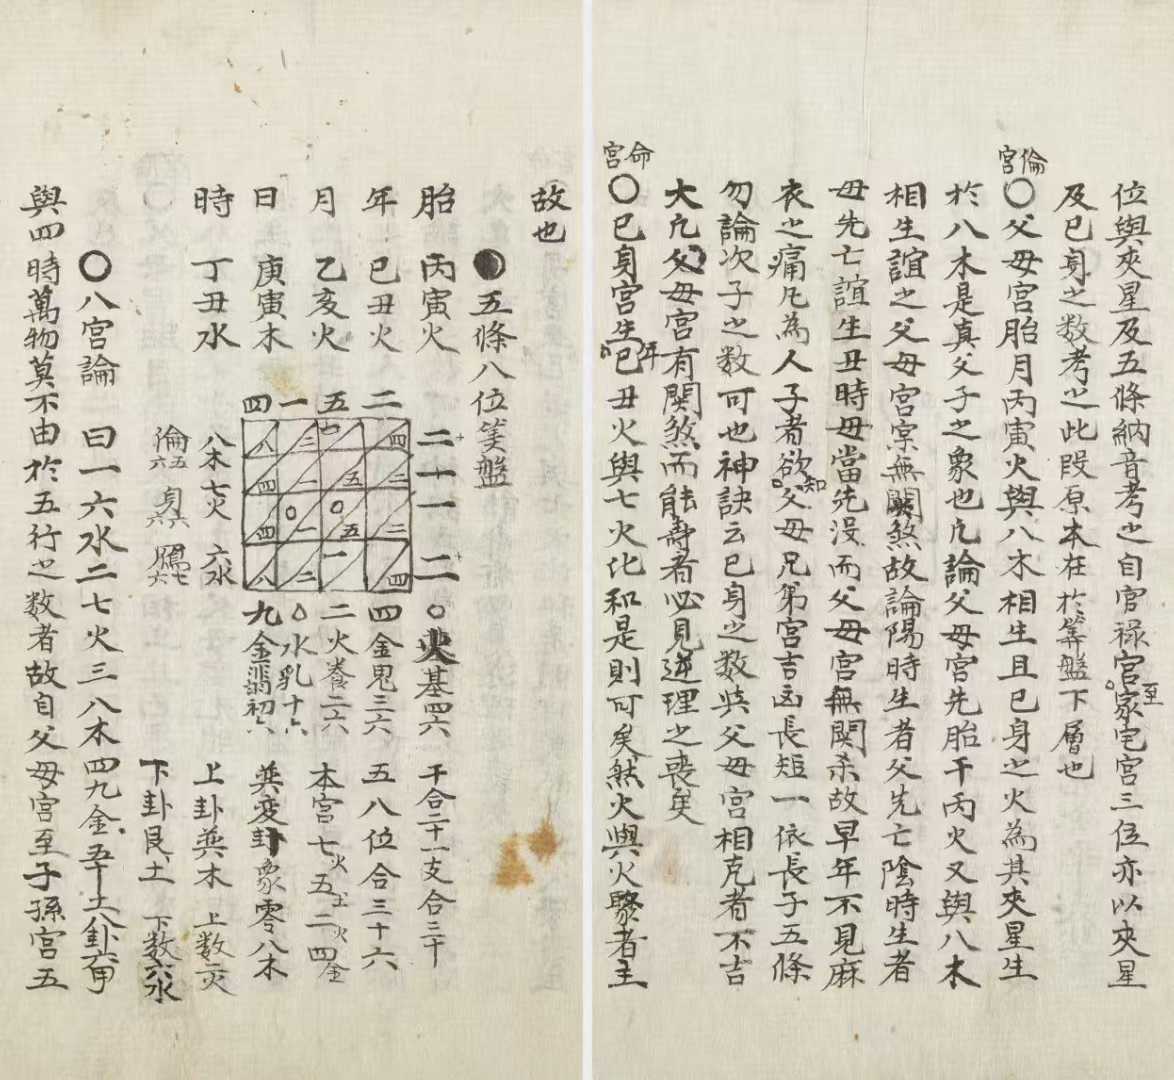 位與夾星及五條納音考之自官祿宮至家宅宮三位亦以夾星
及已身之数考之此段原本在於筭盤下層也
倫宮
〇父母宮胎月丙寅火與八木相生且已身之火為其夾星生
於八木是真父子之象也凡論父母宮先胎干丙火又與八木
相生誼之父母宮宲無関煞故論陽時生者父先亡陰時生者
母先亡誼生丑時母當先没而父母宮無関杀故早年不見麻
衣之痛凡為人子者欲知父母兄弟宮吉凶長短一依長子五條
勿論次子之数可也神訣云已身之数與父母宮相克者不吉
大凡父母宮有関煞而能壽者必見逆理之喪矣
命宮
〇已身宮生年已丑火與七火比和是則可矣然火與火聚者主
故也
五條八位筭盤
胎 丙寅火
年 已丑火
月 乙亥火
日 庚寅木
時 丁丑水
四一五二
二十一二
八三四
四二五二
四一五二
八二一四
〇火基四六
四金鬼三六
二火養二六
〇水乳十六
九金翡初六
八木七火 六水
倫五六 身六六 鴈七六
干合二十一支合三十
五八位合三十六
本宮七火五土二火四金
巽变卦象零八木
上卦巽木 上数二火
下卦艮土 下数六水
〇八宮論 曰一六水二七火三八木四九金五十土八卦六甲
與四時萬物莫不由於五行之数者故自父母宮至子孫宮五